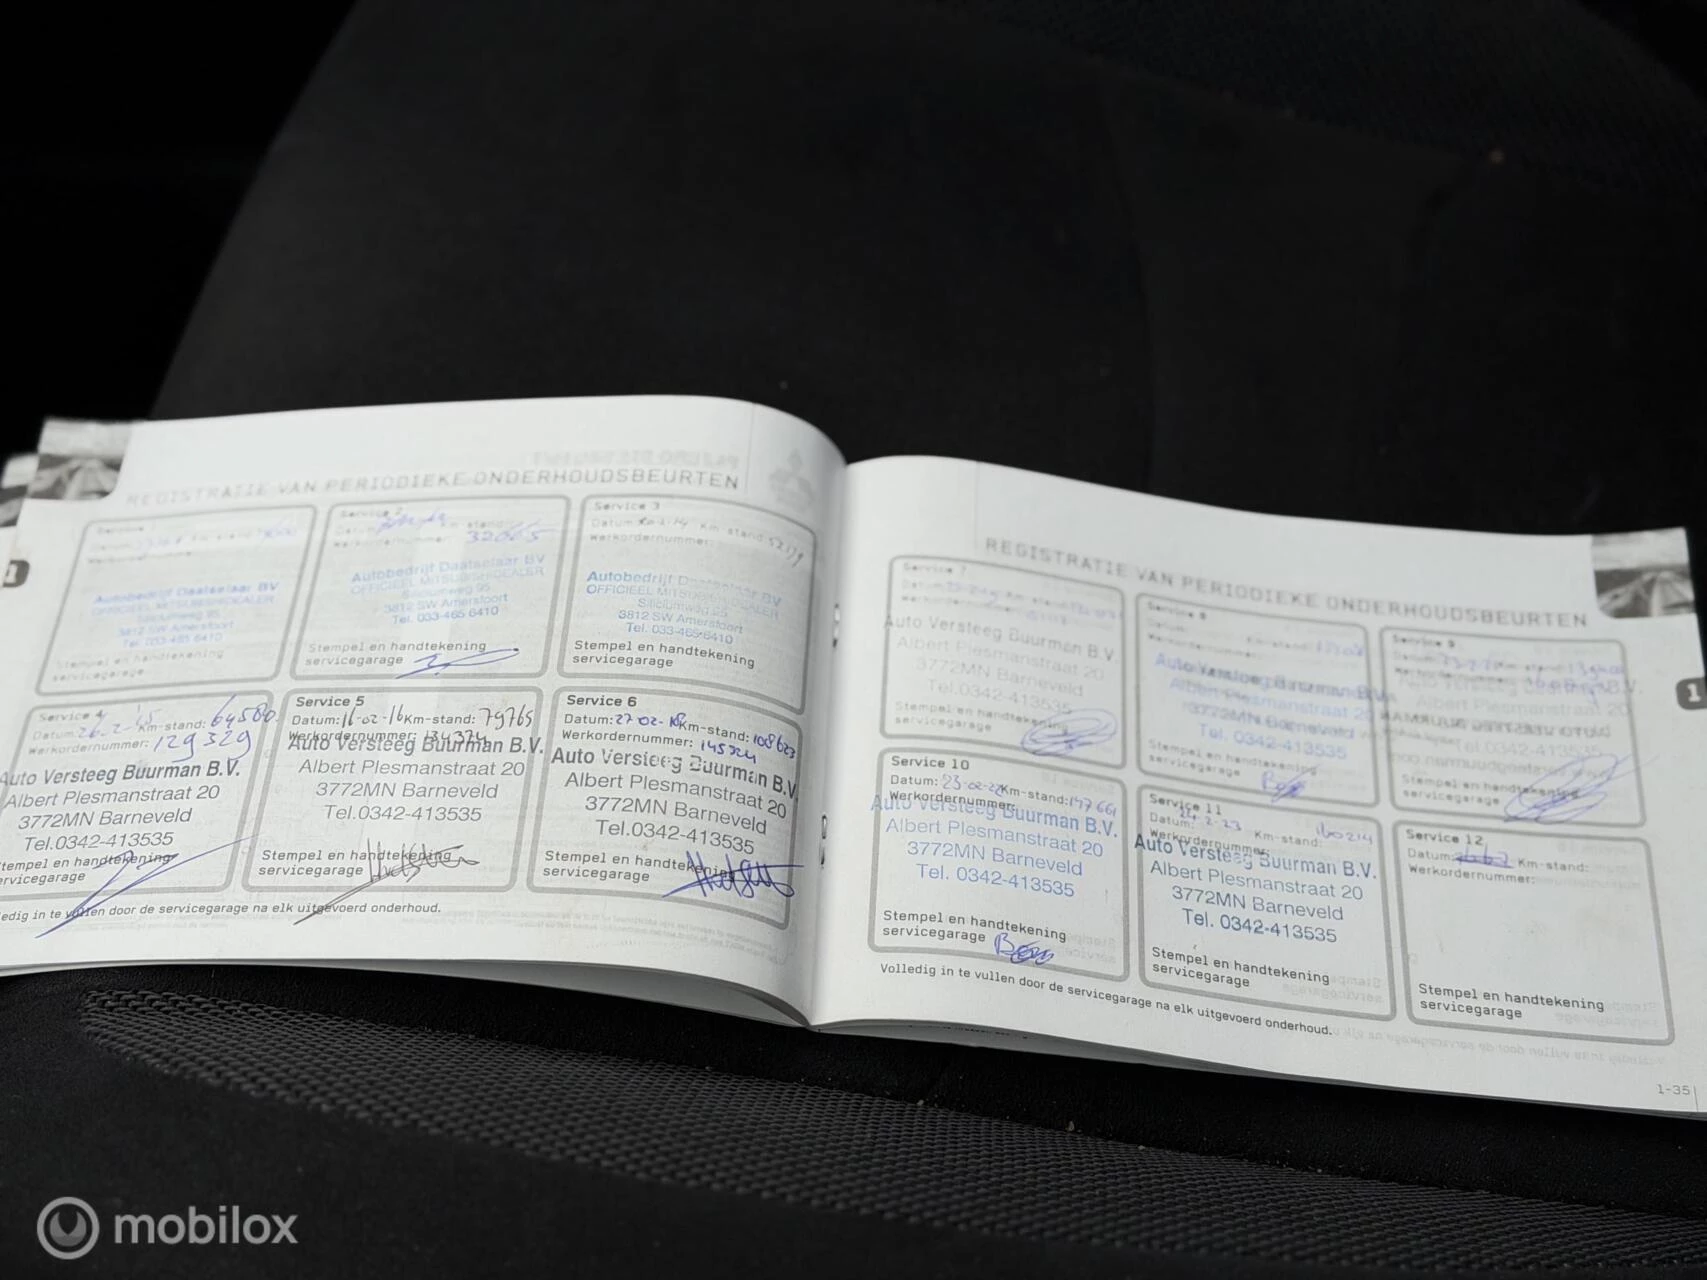 REGISTRATIE VAN PERIODIEKE ONDERHOUDSBEURTEN
Autobedrijf Daatselaar BV
OFFICIEEL MITSUBISHIDEALER
Siliciumweg 95
3812 SW Amersfoort
Tel. 033-465 6410
Stempel en handtekening
servicegarage
Service 2
Datum Km-stand:
Werkordernummer: 32065
Autobedrijf Daatselaar BV
OFFICIEEL MITSUBISHIDEALER
Siliciumweg 95
3812 SW Amersfoort
Tel. 033-465 6410
Stempel en handtekening
servicegarage
Service 3
Datum Km-stand
Werkordernummer:
Autobedrijf Daatselaar BV
OFFICIEEL MITSUBISHIDEALER
Siliciumweg 95
3812 SW Amersfoort
Tel. 033-465-6410
Stempel en handtekening
servicegarage
Service 4
Datum: 26-2-'15 Km-stand: 64580
Werkordernummer: 129329
Auto Versteeg Buurman B.V.
Albert Plesmanstraat 20
3772MN Barneveld
Tel.0342-413535
Stempel en handtekening
servicegarage
Service 5
Datum: 16-02-16 Km-stand: 79765
Werkordernummer: 134374
Auto Versteeg Buurman B.V.
Albert Plesmanstraat 20
3772MN Barneveld
Tel.0342-413535
Stempel en handtekening
servicegarage
Service 6
Datum: 27-02-18 Km-stand: 108623
Werkordernummer: 145324
Auto Versteeg Buurman B.V.
Albert Plesmanstraat 20
3772MN Barneveld
Tel.0342-413535
Stempel en handtekening
servicegarage
ledig in te vullen door de servicegarage na elk uitgevoerd onderhoud.
1
REGISTRATIE VAN PERIODIEKE ONDERHOUDSBEURTEN
Service 7
Werkordernummer:
Auto Versteeg Buurman B.V.
Albert Plesmanstraat 20
3772MN Barneveld
Tel.0342-413535
Stempel en handtekening
servicegarage
Service 8
Datum: Km-stand:
Auto Versteeg Buurman B.V.
Albert Plesmanstraat 20
3772MN Barneveld
Tel. 0342-413535
Stempel en handtekening
servicegarage
Service 9
Stempel en handtekening
servicegarage
Service 10
Datum: 23-02-22 Km-stand: 147661
Werkordernummer:
Auto Versteeg Buurman B.V.
Albert Plesmanstraat 20
3772MN Barneveld
Tel. 0342-413535
Stempel en handtekening
servicegarage
Service 11
Datum: 24-2-23 Km-stand: 160214
Werkordernummer:
Auto Versteeg Buurman B.V.
Albert Plesmanstraat 20
3772MN Barneveld
Tel. 0342-413535
Stempel en handtekening
servicegarage
Service 12
Datum: Km-stand:
Werkordernummer:
Stempel en handtekening
servicegarage
Volledig in te vullen door de servicegarage na elk uitgevoerd onderhoud.
1
1-35
mobilox